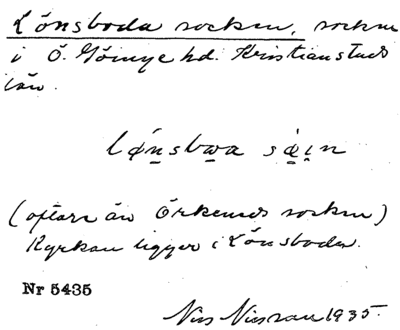 Lönsboda socken, socken
i Ö. Göinge hd. Kristianstads
län.
(oftare än Örkeneds socken)
Kyrkan ligger i Lönsboda.
Nr 5435
Nils Nilsson 1935.